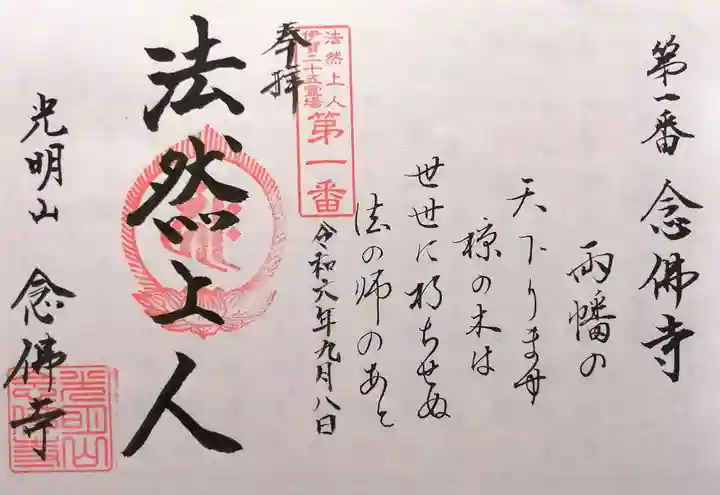 第一番 念佛寺
両幡の
天下ります
椋の木は
世世に朽ちせぬ
法の師のあと
奉拝
法然上人
伊賀二十五霊場
第一番
令和六年九月八日
法然上人
光明山 念佛寺